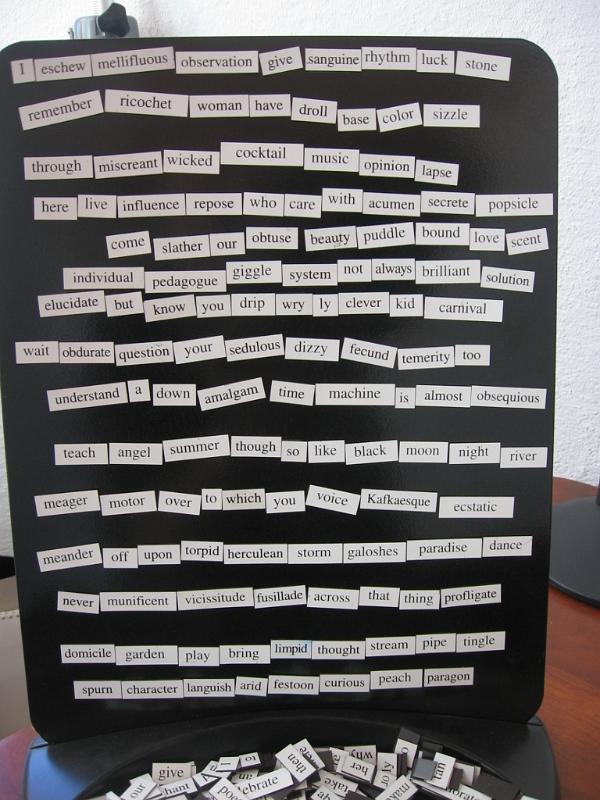 I eschew mellifluous observation give sanguine rhythm luck stone
remember ricochet woman have droll base color sizzle
through miscreant wicked cocktail music opinion lapse
here live influence repose who care with acumen secrete popsicle
come slather our obtuse beauty puddle bound love scent
individual pedagogue giggle system not always brilliant solution
elucidate but know you drip wry ly clever kid carnival
wait obdurate question your sedulous dizzy fecund temerity too
understand a down amalgam time machine is almost obsequious
teach angel summer though so like black moon night river
meager motor over to which you voice Kafkaesque ecstatic
meander off upon torpid herculean storm galoshes paradise dance
never munificent vicissitude fusillade across that thing profligate
domicile garden play bring limpid thought stream pipe tingle
spurn character languish arid festoon curious peach paragon
give then why her
our take to ty